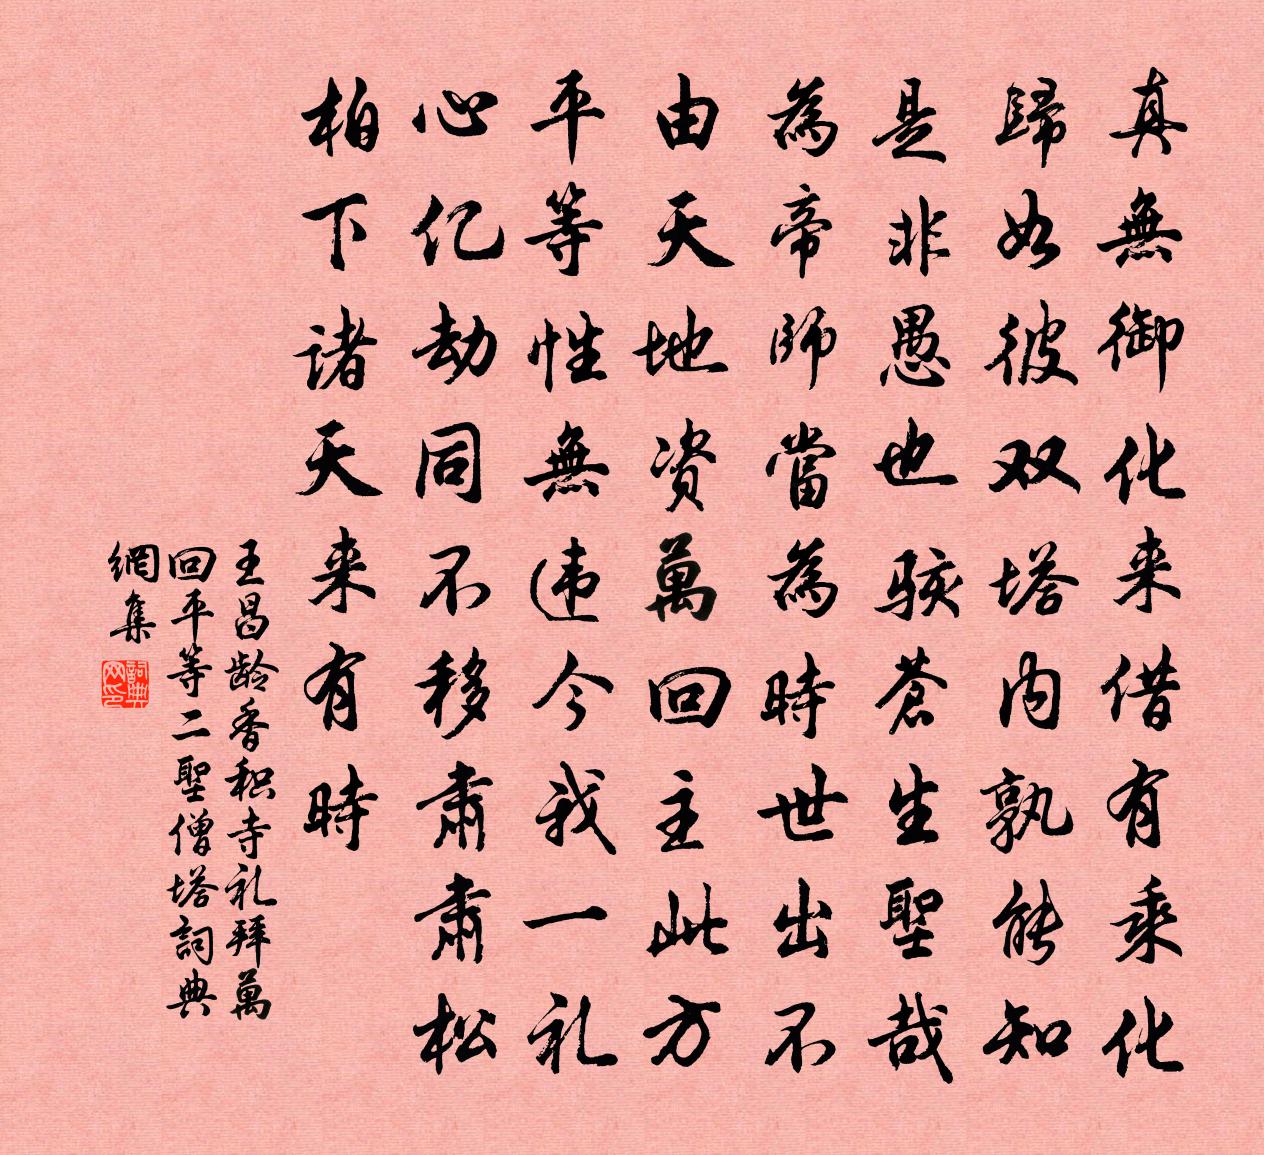 真無御化来借有乘化
歸如彼双塔内孰能知
是非愚也駭蒼生聖哉
為帝師當為時世出不
由天地資萬回主此方
平等性無违今我一礼
心亿劫同不移肅肅松
柏下諸天来有時
王昌龄香积寺礼拜萬
回平等二聖僧塔詞典
網集
詞典网印